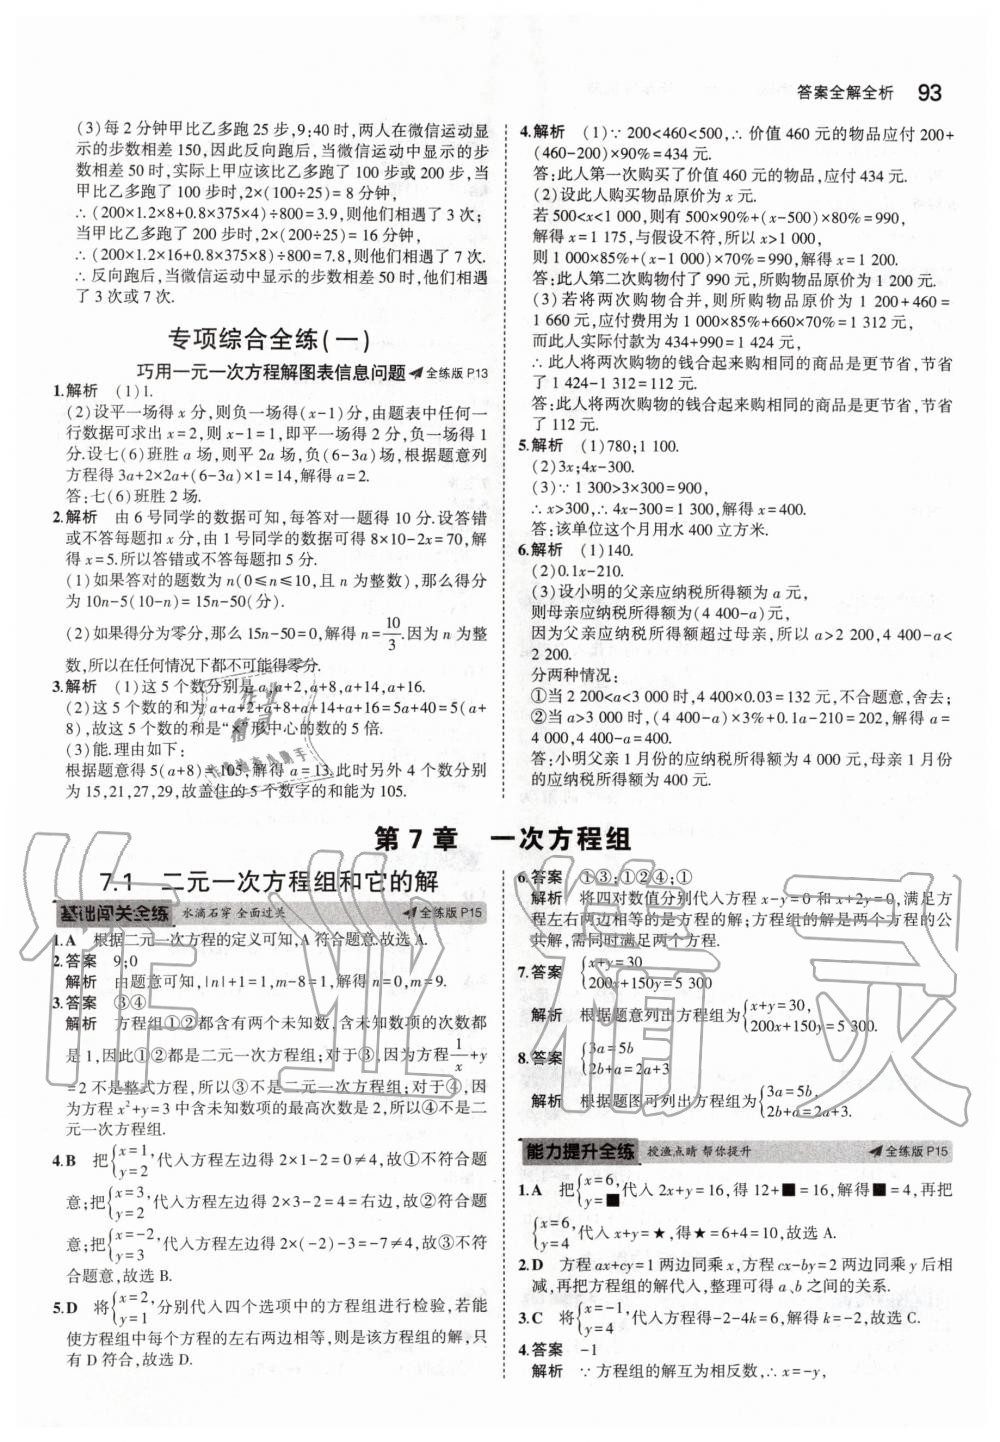 答案全解全析 93
(3)每2分钟甲比乙多跑25步,9:40时,两人在微信运动中显
示的步数相差150,因此反向跑后,当微信运动中显示的步
数相差50时,实际上甲应该比乙多跑了100步或200步,当
甲比乙多跑了100步时,2×(100÷25)=8分钟,
∴(200×1.2×8+0.8×375×4)÷800=3.9,则他们相遇了3次;
当甲比乙多跑了200步时,2×(200÷25)=16分钟,
∴(200×1.2×16+0.8×375×8)÷800=7.8,则他们相遇了7次.
∴反向跑后,当微信运动中显示的步数相差50时,他们相遇
了3次或7次.
专项综合全练(一)
巧用一元一次方程解图表信息问题 全练版P13
1.解析 (1)1.
(2)设平一场得x分,则负一场得(x-1)分,由题表中任何一
行数据可求出x=2,则x-1=1,即平一场得2分,负一场得1
分.设七(6)班胜a场,则平2a场,负(6-3a)场,根据题意列
方程得3a+2×2a+(6-3a)×1=14,解得a=2.
答:七(6)班胜2场.
2.解析 由6号同学的数据可知,每答对一题得10分.设答错
或不答每题扣x分,由1号同学的数据可得8×10-2x=70,解
得x=5.所以答错或不答每题扣5分.
(1)如果答对的题数为n(0≤n≤10,且n为整数),那么得分
为10n-5(10-n)=15n-50(分).
(2)如果得分为零分,那么15n-50=0,解得n=10/3.因为n为整
数,所以在任何情况下都不可能得零分.
3.解析 (1)这5个数分别是a,a+2,a+8,a+14,a+16.
(2)这5个数的和为a+a+2+a+8+a+14+a+16=5a+40=5(a+
8),故这5个数的和是“×”形中心的数的5倍.
(3)能.理由如下:
根据题意得5(a+8)=105,解得a=13.此时另外4个数分别
为15,21,27,29,故盖住的5个数字的和能为105.
4.解析 (1)∵200<460<500,∴价值460元的物品应付200+
(460-200)×90%=434元.
答:此人第一次购买了价值460元的物品,应付434元.
(2)设此人购买物品原价为x元.
若500<x<1 000,则有500×90%+(x-500)×80%=990,
解得x=1 175,与假设不符,所以x>1 000,
则1 000×85%+(x-1 000)×70%=990,解得x=1 200.
答:此人第二次购物付了990元,所购物品原价为1 200元.
(3)若将两次购物合并,则所购物品原价为1 200+460=
1 660元,应付费用为1 000×85%+660×70%=1 312元,
而此人实际付款为434+990=1 424元,
∴此人将两次购物的钱合起来购相同的商品是更节省,节省
了1 424-1 312=112元.
答:此人将两次购物的钱合起来购相同的商品是更节省,节省
了112元.
5.解析 (1)780;1 100.
(2)3x;4x-300.
(3)∵1 300>3×300=900,
∴x>300,∴4x-300=1 300,解得x=400.
答:该单位这个月用水400立方米.
6.解析 (1)140.
(2)0.1x-210.
(3)设小明的父亲应纳税所得额为a元,
则母亲应纳税所得额为(4 400-a)元,
因为父亲应纳税所得额超过母亲,所以a>2 200,4 400-a<
2 200.
分两种情况:
①当2 200<a<3 000时,4 400×0.03=132元,不合题意,舍去;
②当a>3 000时,(4 400-a)×3%+0.1a-210=202,解得a=
4 000,4 400-a=400.
答:小明父亲1月份的应纳税所得额为4 000元,母亲1月份
的应纳税所得额为400元.
第7章 一次方程组
7.1 二元一次方程组和它的解
基础闯关全练 水滴石穿 全面过关 全练版P15
1.A 根据二元一次方程的定义可知,A符合题意.故选A.
2.答案 9;0
解析 由题意可知,|n|+1=1,m-8=1,解得n=0,m=9.
3.答案 ③④
解析 方程组①②都含有两个未知数,含未知数项的次数都
是1,因此①②都是二元一次方程组;对于③,因为方程1/x+y
=2不是整式方程,所以③不是二元一次方程组;对于④,因
为方程x²+y=3中含未知数项的最高次数是2,所以④不是二
元一次方程组.
4.B 把{x=1,y=2代入方程左边得2×1-2=0≠4,故①不符合题
意;把{x=3,y=2代入方程左边得2×3-2=4=右边,故②符合题
意;把{x=-2,y=3代入方程左边得2×(-2)-3=-7≠4,故③不符
合题意,故选B.
5.D 将{x=2,y=1分别代入四个选项中的方程组进行检验,若能
使方程组中每个方程的左右两边相等,则是该方程组的解,只
有D符合,故选D.
6.答案 ①③;①②④;①
解析 将四对数值分别代入方程x-y=0和x+2y=0,满足方
程左右两边相等的是方程的解;方程组的解是两个方程的公
共解,需同时满足两个方程.
7.答案 {x+y=30 200x+150y=5 300
解析 根据题意列出方程组为{x+y=30, 200x+150y=5 300.
8.答案 {3a=5b 2b+a=2a+3
解析 根据题图可列出方程组为{3a=5b, 2b+a=2a+3.
能力提升全练 授渔点睛 帮你提升 全练版P15
1.A 把{x=6,y=■代入2x+y=16,得12+■=16,解得■=4,再把
{x=6,y=4代入x+y=★,得★=6+4=10,故选A.
2.D 方程ax+cy=1两边同乘x,方程cx-by=2两边同乘y后相
减,再把方程组的解代入,整理可得a、b之间的关系.
3.C 将{x=-1,y=4代入方程得-2-4k=6,解得k=-2,故选C.
4.答案 -1
解析 ∵方程组的解互为相反数,∴x=-y,
作业精灵